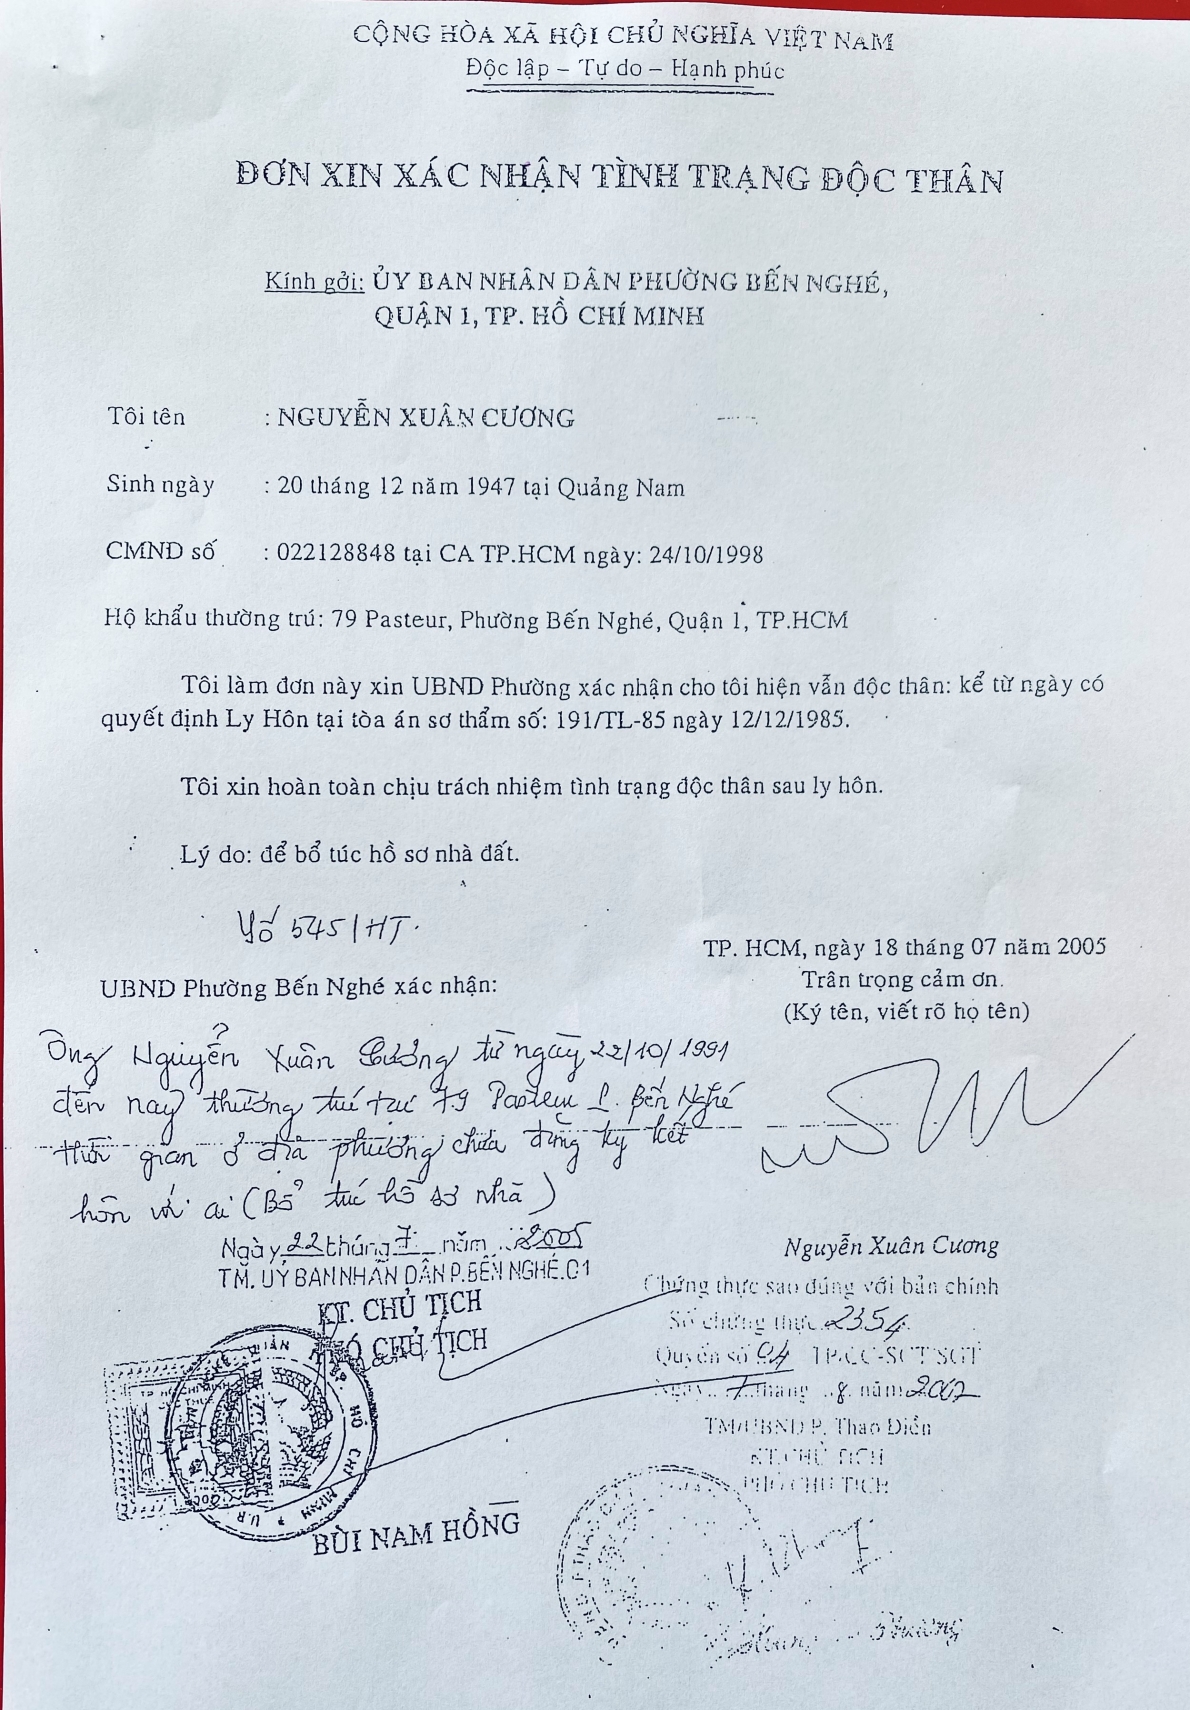 CỘNG HÒA XÃ HỘI CHỦ NGHĨA VIỆT NAM
Độc lập – Tự do – Hạnh phúc
ĐƠN XIN XÁC NHẬN TÌNH TRẠNG ĐỘC THÂN
Kính gởi: ỦY BAN NHÂN DÂN PHƯỜNG BẾN NGHÉ,
QUẬN 1, TP. HỒ CHÍ MINH
Tôi tên : NGUYỄN XUÂN CƯƠNG
Sinh ngày : 20 tháng 12 năm 1947 tại Quảng Nam
CMND số : 022128848 tại CA TP.HCM ngày: 24/10/1998
Hộ khẩu thường trú: 79 Pasteur, Phường Bến Nghé, Quận 1, TP.HCM
Tôi làm đơn này xin UBND Phường xác nhận cho tôi hiện vẫn độc thân: kể từ ngày có
quyết định Ly Hôn tại tòa án sơ thẩm số: 191/TL-85 ngày 12/12/1985.
Tôi xin hoàn toàn chịu trách nhiệm tình trạng độc thân sau ly hôn.
Lý do: để bổ túc hồ sơ nhà đất.
Số 545/HT.
TP. HCM, ngày 18 tháng 07 năm 2005
Trân trọng cảm ơn.
UBND Phường Bến Nghé xác nhận:
(Ký tên, viết rõ họ tên)
Ông Nguyễn Xuân Cương từ ngày 22/10/1991
đến nay thường trú tại 79 Pasteur P. Bến Nghé
thời gian ở địa phương chưa đăng ký kết
hôn với ai (Bổ túc hồ sơ nhà)
Ngày 22 tháng 7 năm 2005
Nguyễn Xuân Cương
TM. UỶ BAN NHÂN DÂN P.BẾN NGHÉ.Q1
Chứng thực sao đúng với bản chính
KT. CHỦ TỊCH
Số chứng thực 2354
PHÓ CHỦ TỊCH
Quyển số 04 TP.CC-SCT/SGT
Ngày 7 tháng 8 năm 2007
TM/UBND P. Thảo Điền
KT.CHỦ TỊCH
PHÓ CHỦ TỊCH
BÙI NAM HỒNG